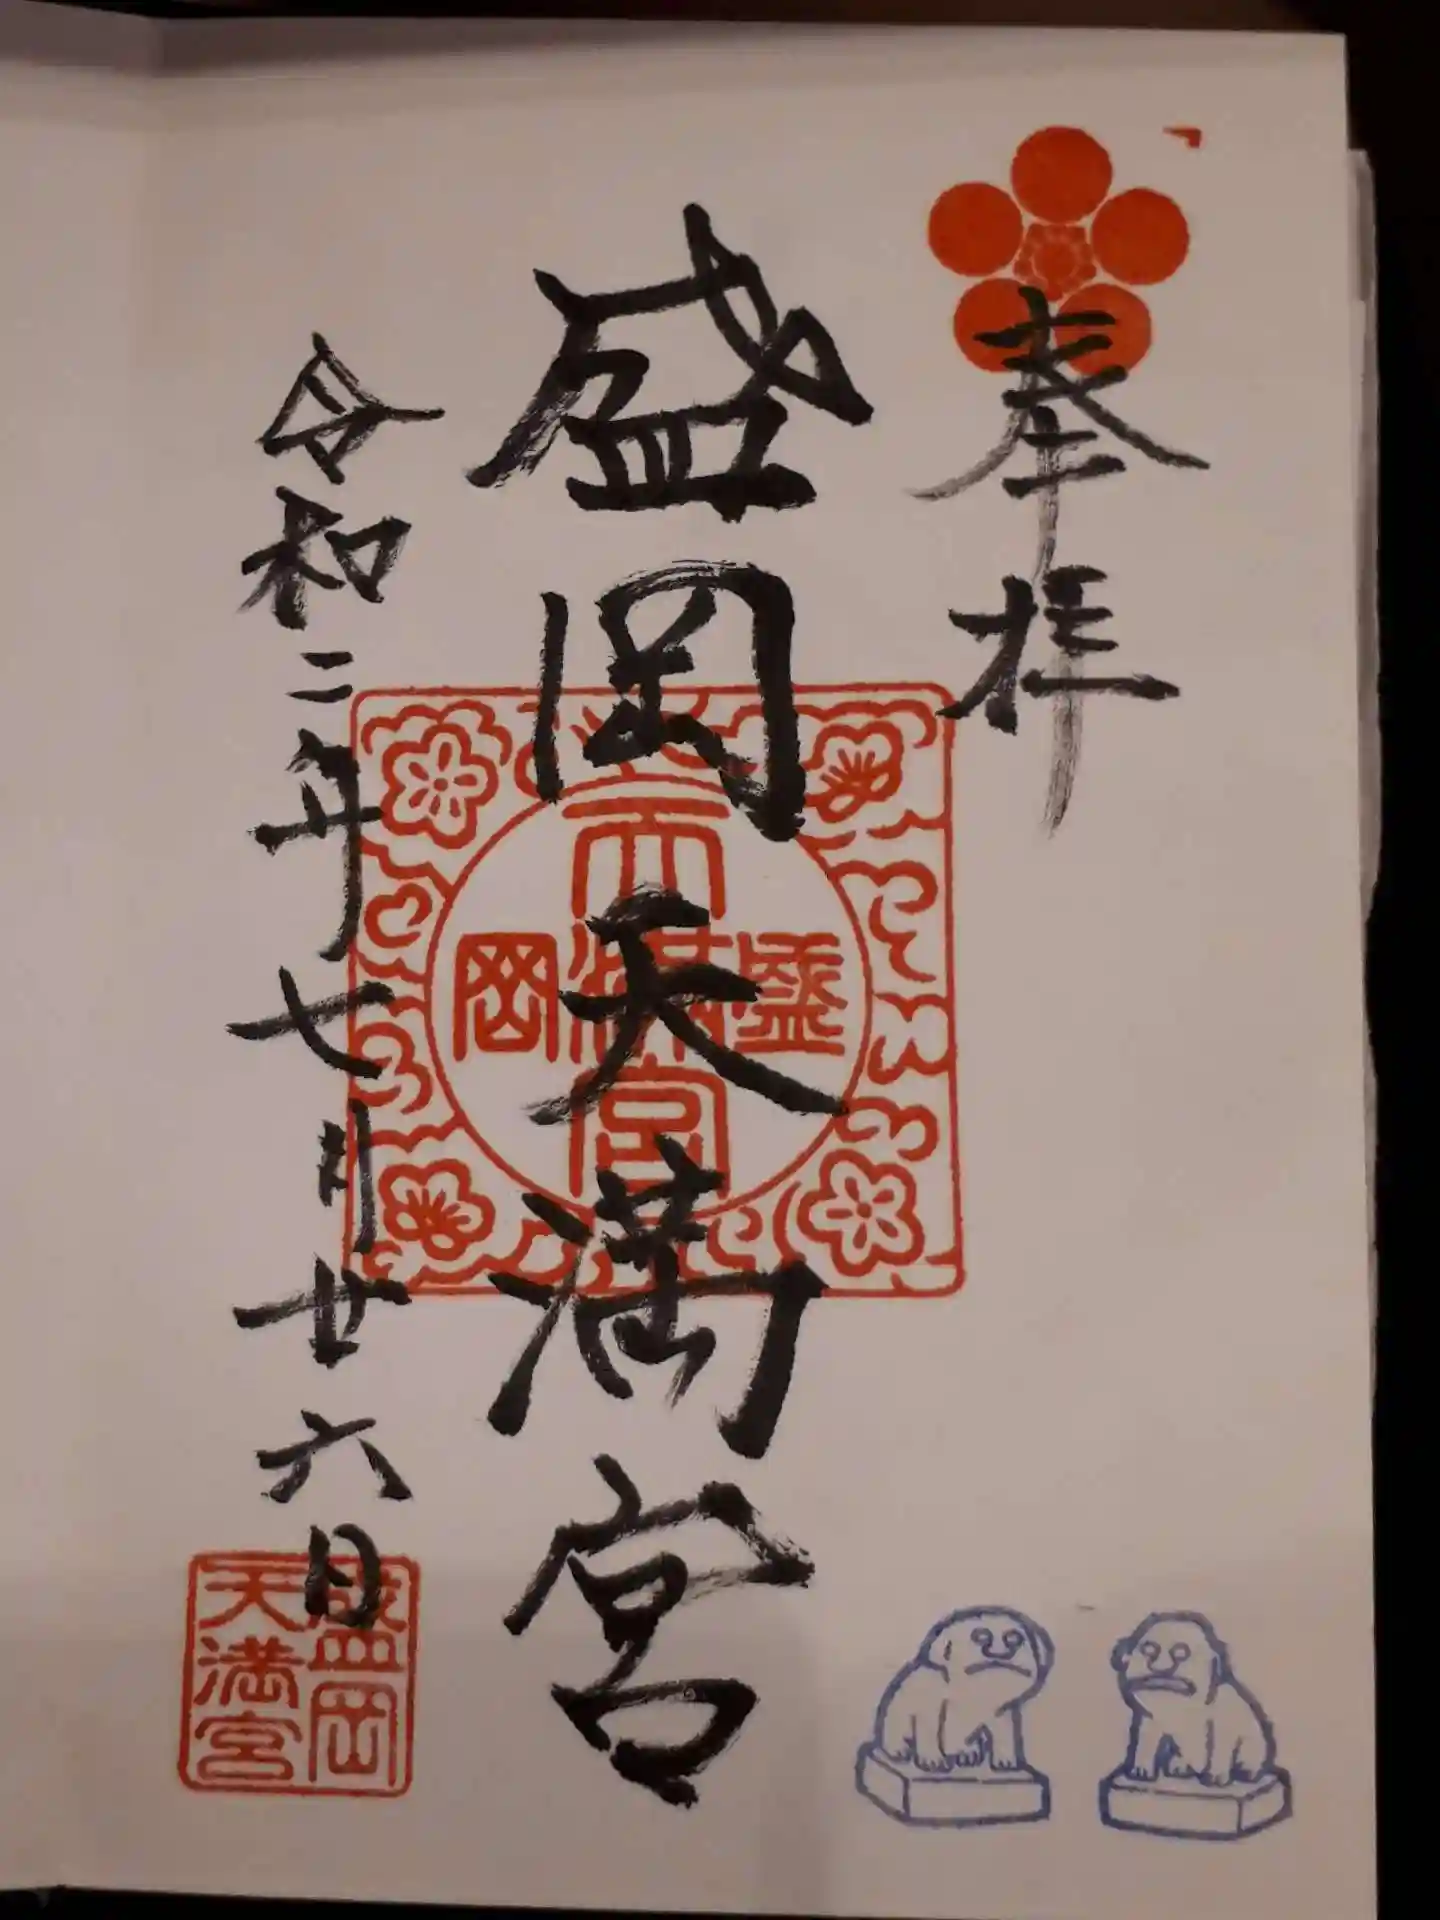 奉拝
盛岡天満宮
令和二年七月廿六日
天満宮
盛岡
盛岡
天満宮